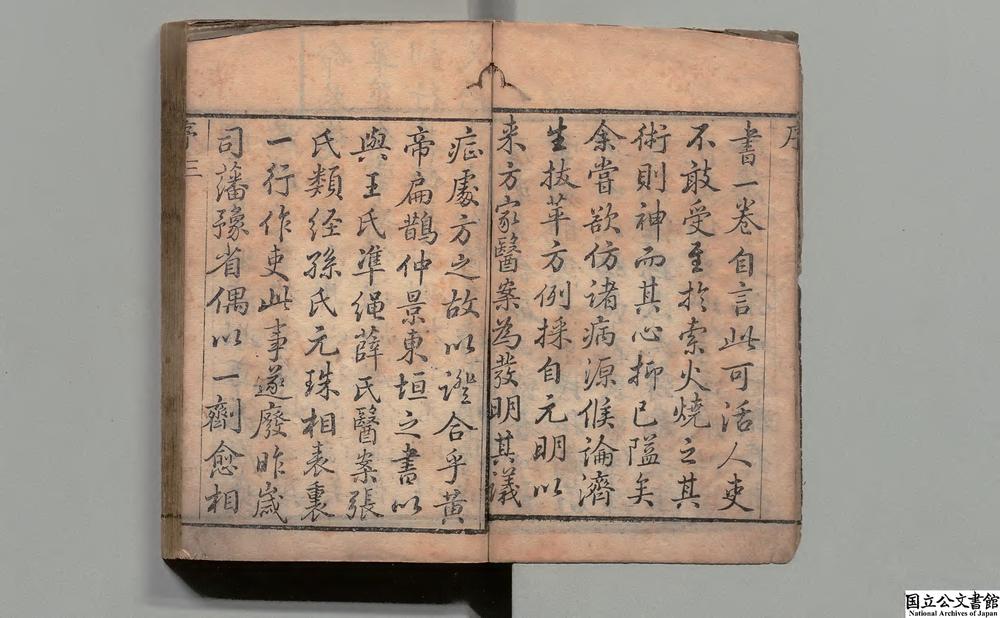 序
書一卷自言此可活人吏
不敢受至於索火燒之其
術則神而其心抑已隘矣
余嘗欲仿諸病源候論濟
生拔萃方例採自元明以
来方家醫案為發明其議
症處方之故以證合乎黃
帝扁鵲仲景東垣之書以
與王氏準繩薛氏醫案張
氏類经孫氏元珠相表裏
一行作吏此事遂廢昨歲
司藩豫省偶以一劑愈相
序 三
国立公文書館
National Archives of Japan